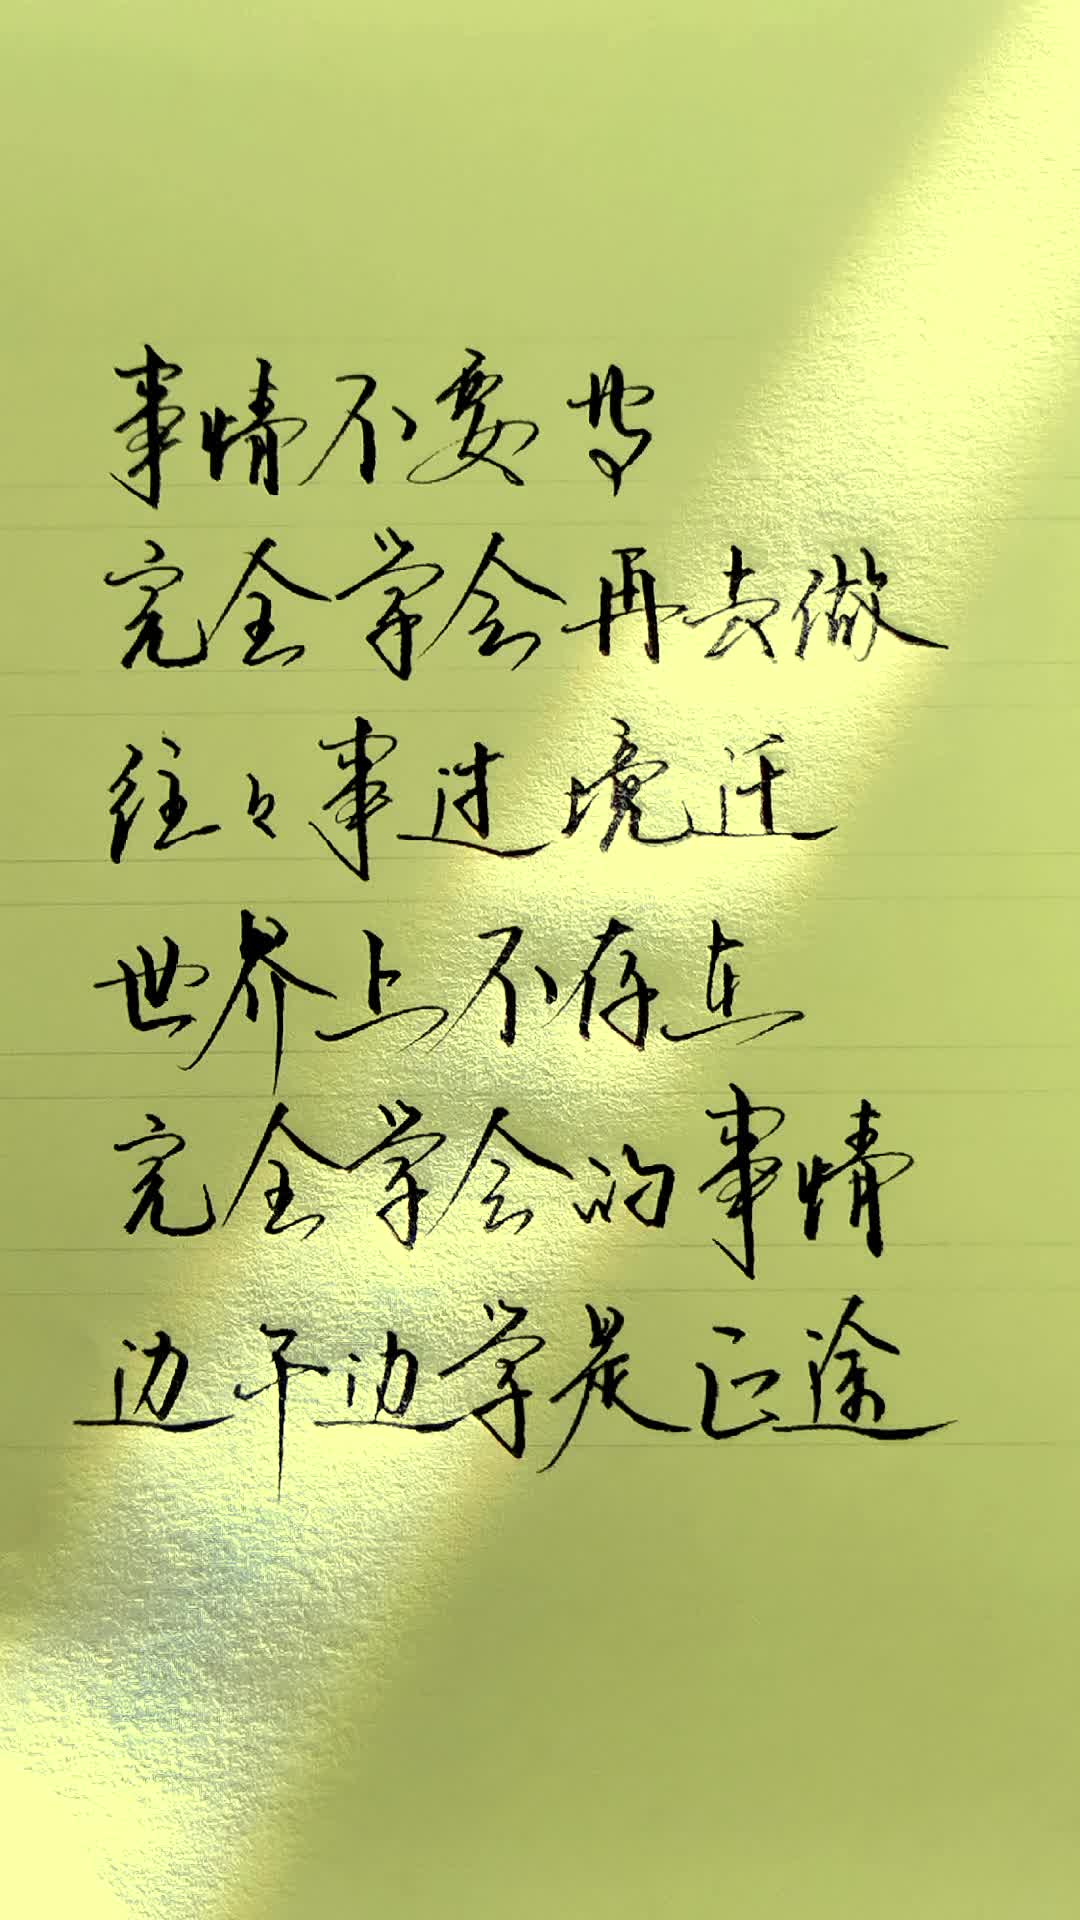 事情不要等
完全学会再去做
往々事过境迁
世界上不存在
完全学会的事情
边干边学是正途